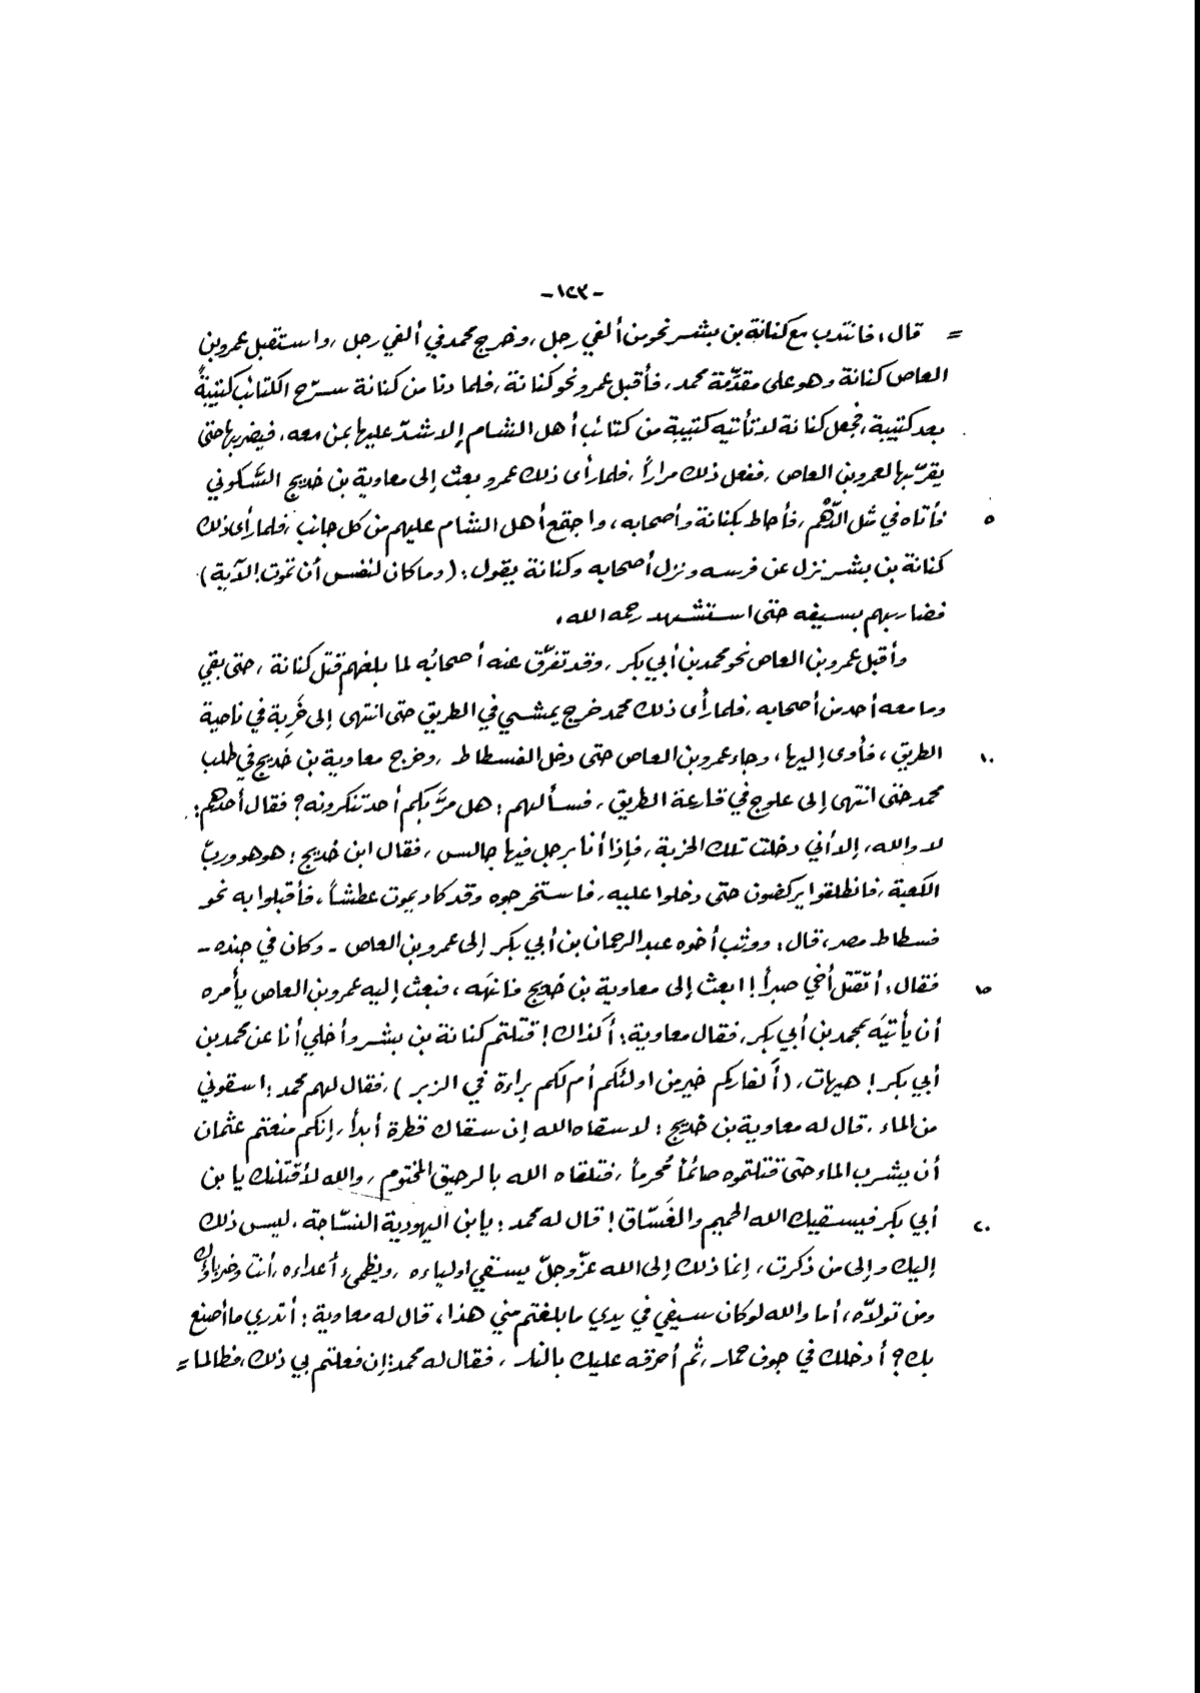 -١٢٣-
= قال، فانتدب مع كنانة بن بشر نحو من ألفي رجل، وخرج محمد في ألفي رجل، واستقبل عمرو بن
العاص كنانة وهو على مقدّمة محمد، فأقبل عمرو نحو كنانة، فلما دنا من كنانة سرّح الكتائب كتيبةً
بعد كتيبة، فجعل كنانة لا تأتيه كتيبة من كتائب أهل الشام إلا شدّ عليها بمن معه، فيضربها حتى
يقرّبها لعمرو بن العاص، ففعل ذلك مراراً، فلما رأى ذلك عمرو بعث إلى معاوية بن خديج السَّكوني
٥ فأتاه في مثل الدّهْم، فأحاط بكنانة وأصحابه، واجتمع أهل الشام عليهم من كل جانب، فلما رأى ذلك
كنانة بن بشر نزل عن فرسه ونزل أصحابه وكنانة يقول: (وما كان لنفس أن تموت ! الآية)
فضاربهم بسيفه حتى استشهد رحمه الله.
وأقبل عمرو بن العاص نحو محمد بن أبي بكر، وقد تفرّق عنه أصحابُه لما بلغهم قتل كنانة، حتى بقي
وما معه أحد من أصحابه، فلما رأى ذلك محمد خرج يمشي في الطريق حتى انتهى إلى خَرِبة في ناحية
١٠ الطريق، فأوى إليها، وجاء عمرو بن العاص حتى دخل الفسطاط، وخرج معاوية بن خديج في طلب
محمد حتى انتهى إلى علوج في قارعة الطريق، فسألهم: هل مرَّ بكم أحد تنكرونه؟ فقال أحدهم:
لا والله، إلا أني دخلت تلك الخربة، فإذا أنا برجل فيها جالس، فقال ابن خديج: هو هو وربّ
الكعبة، فانطلقوا يركضون حتى دخلوا عليه، فاستخرجوه وقد كاد يموت عطشاً، فأقبلوا به نحو
فسطاط مصر، قال: ووثب أخوه عبد الرحمان بن أبي بكر إلى عمرو بن العاص - وكان في جنده -
١٥ فقال: أتقتل أخي صبراً! ابعث إلى معاوية بن خديج فانهَه، فبعث إليه عمرو بن العاص يأمره
أن يأتيَه بمحمد بن أبي بكر، فقال معاوية: أكذاك! قتلتم كنانة بن بشر وأخلي أنا عن محمد بن
أبي بكر! هيهات، (أكفاركم خير من اولئكم أم لكم براءة في الزبر)، فقال لهم محمد: اسقوني
من الماء، قال له معاوية بن خديج: لا سقاه الله إن سقاك قطرة أبداً، إنكم منعتم عثمان
أن يشرب الماء حتى قتلتموه صائماً مُحرماً، فتلقاه الله بالرحيق المختوم، والله لأقتلنك يا بن
٢٠ أبي بكر فيسقيك الله الحميم والغَسّاق! قال له محمد: يا بن اليهودية النسّاجة، ليس ذلك
إليك وإلى من ذكرت، إنما ذلك إلى الله عزّ وجلّ يسقي اولياءه، ويظمىء أعداءه، أنت وضرباؤك
ومن تولاّه، أما والله لو كان سيفي في يدي ما بلغتم مني هذا، قال له معاوية: أتدري ما أصنع
بك؟ أدخلك في جوف حمار، ثم أحرقه عليك بالنار، فقال له محمد: إن فعلتم بي ذلك، فطالما =